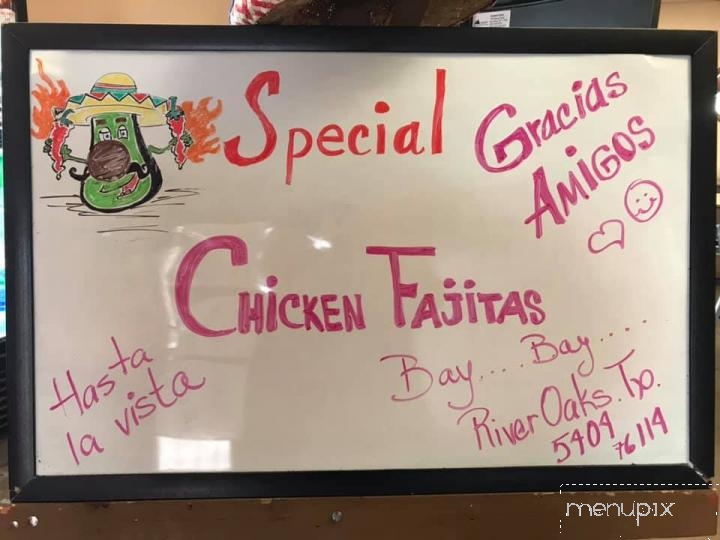 Special
Gracias
AMiGOS
CHiCKEN FAJiTAS
Hasta
la vista
Bay.... Bay....
River Oaks. Tx.
5404
76114
menupix